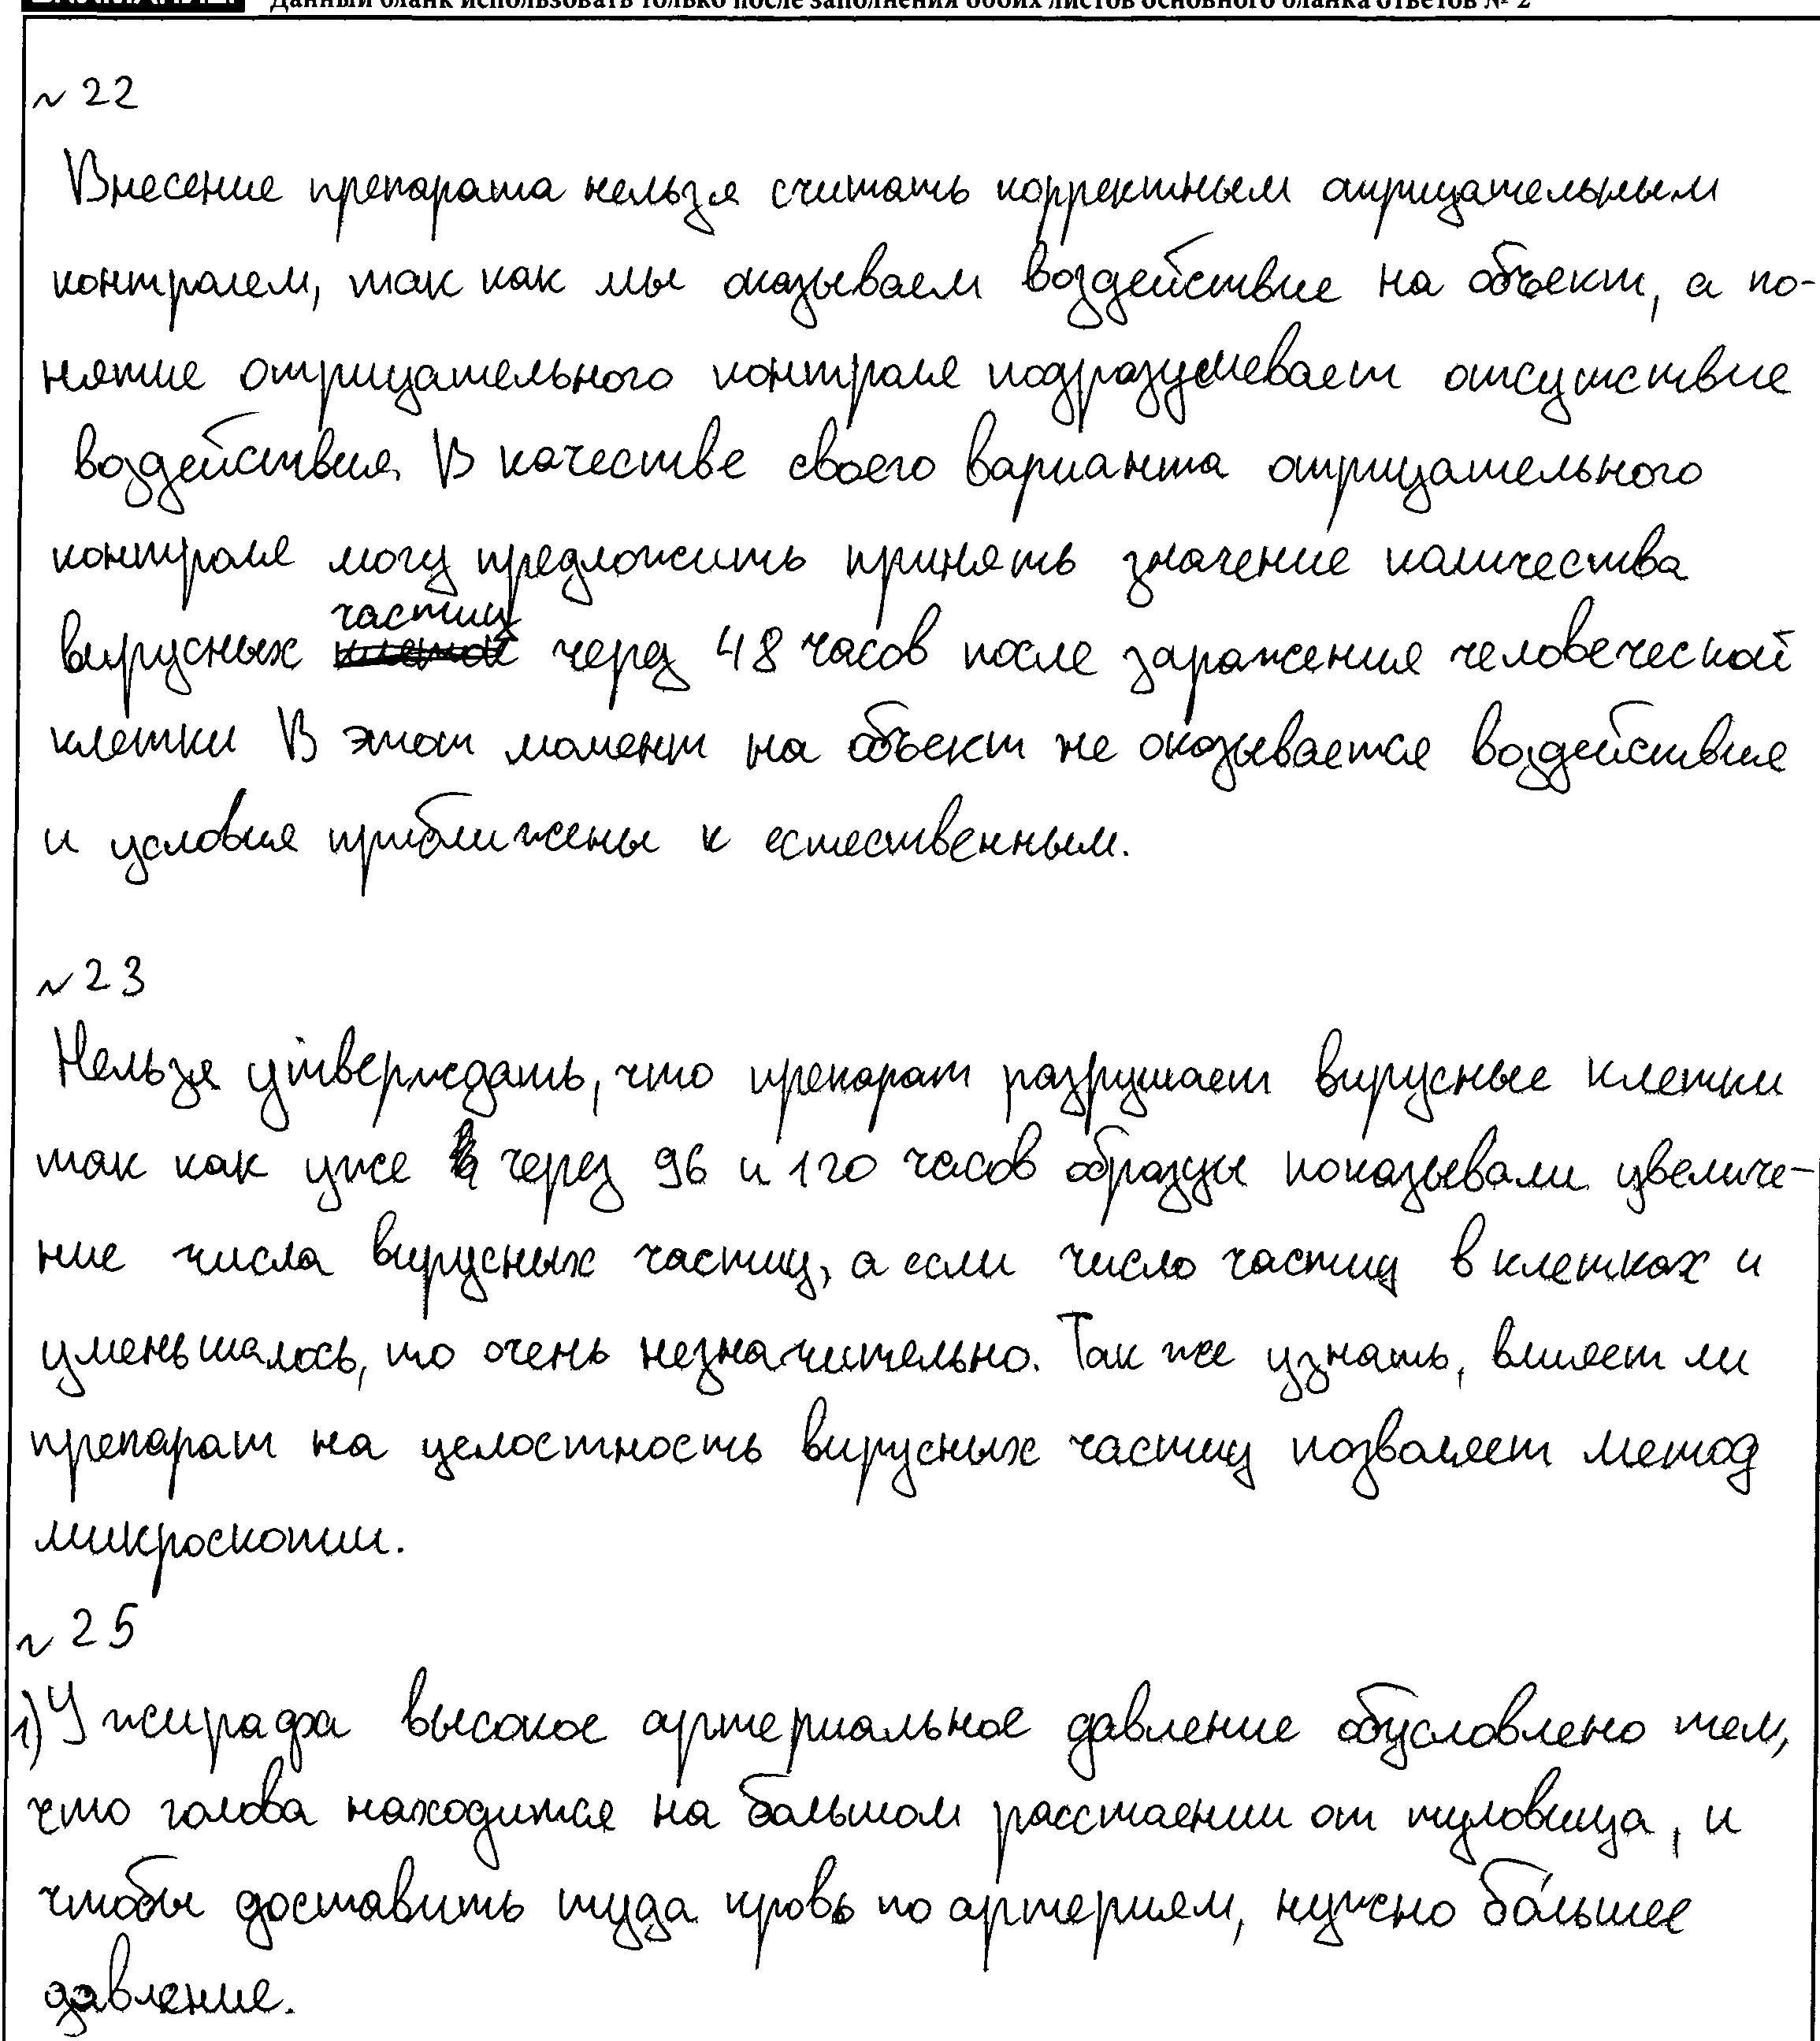 Данный бланк использовать только после заполнения обоих листов основного бланка ответов № 2
№ 22
Внесение препарата нельзя считать корректным отрицательным
контролем, так как мы оказываем воздействие на объект, а по-
нятие отрицательного контроля подразумевает отсутствие
воздействия. В качестве своего варианта отрицательного
контроля могу предложить принять значение количества
вирусных частиц через 48 часов после заражения человеческой
клетки В этот момент на объект не оказывается воздействия
и условия приближены к естественным.
№ 23
Нельзя утверждать, что препарат разрушает вирусные клетки
так как уже через 96 и 120 часов образцы показывали увеличе-
ние числа вирусных частиц, а если число частиц в клетках и
уменьшалось, то очень незначительно. Так же узнать, влияет ли
препарат на целостность вирусных частиц позволяет метод
микроскопии.
№ 25
1) У жирафа высокое артериальное давление обусловлено тем,
что голова находится на большом расстаении от туловища, и
чтобы доставить туда кровь по артериям, нужно бо́льшее
давление.